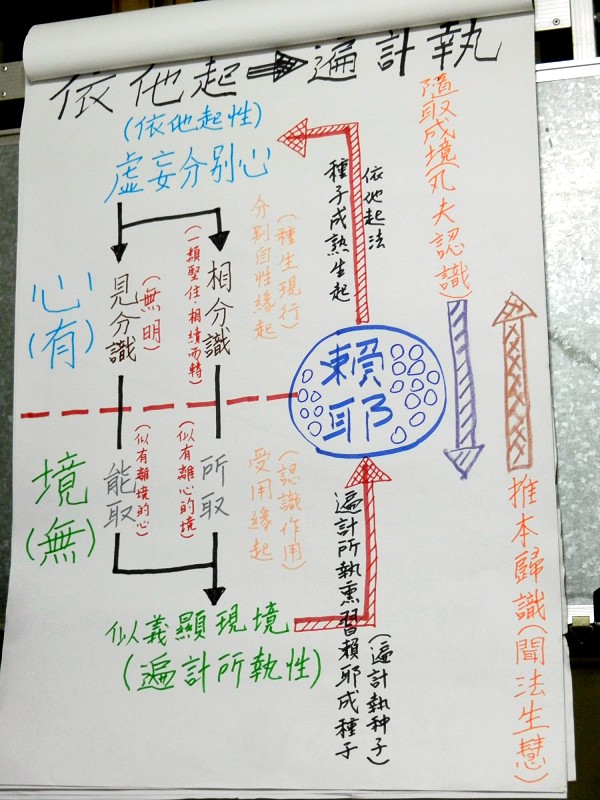 依他起➡遍計執
(依他起性)
虛妄分別心
心
(有)
見分識
(無明)
相分識
(一類堅住相續而轉)
分別自性緣起
(種生現行)
種子成熟生起
依他起法
隨取成境(凡夫認識)
賴
耶
境
(無)
能取
(似有離境的心)
所取
(似有離心的境)
受用緣起
(認識作用)
似義顯現境
(遍計所執性)
遍計所執熏習賴耶成種子
(遍計執种子)
推本歸識(聞法生慧)